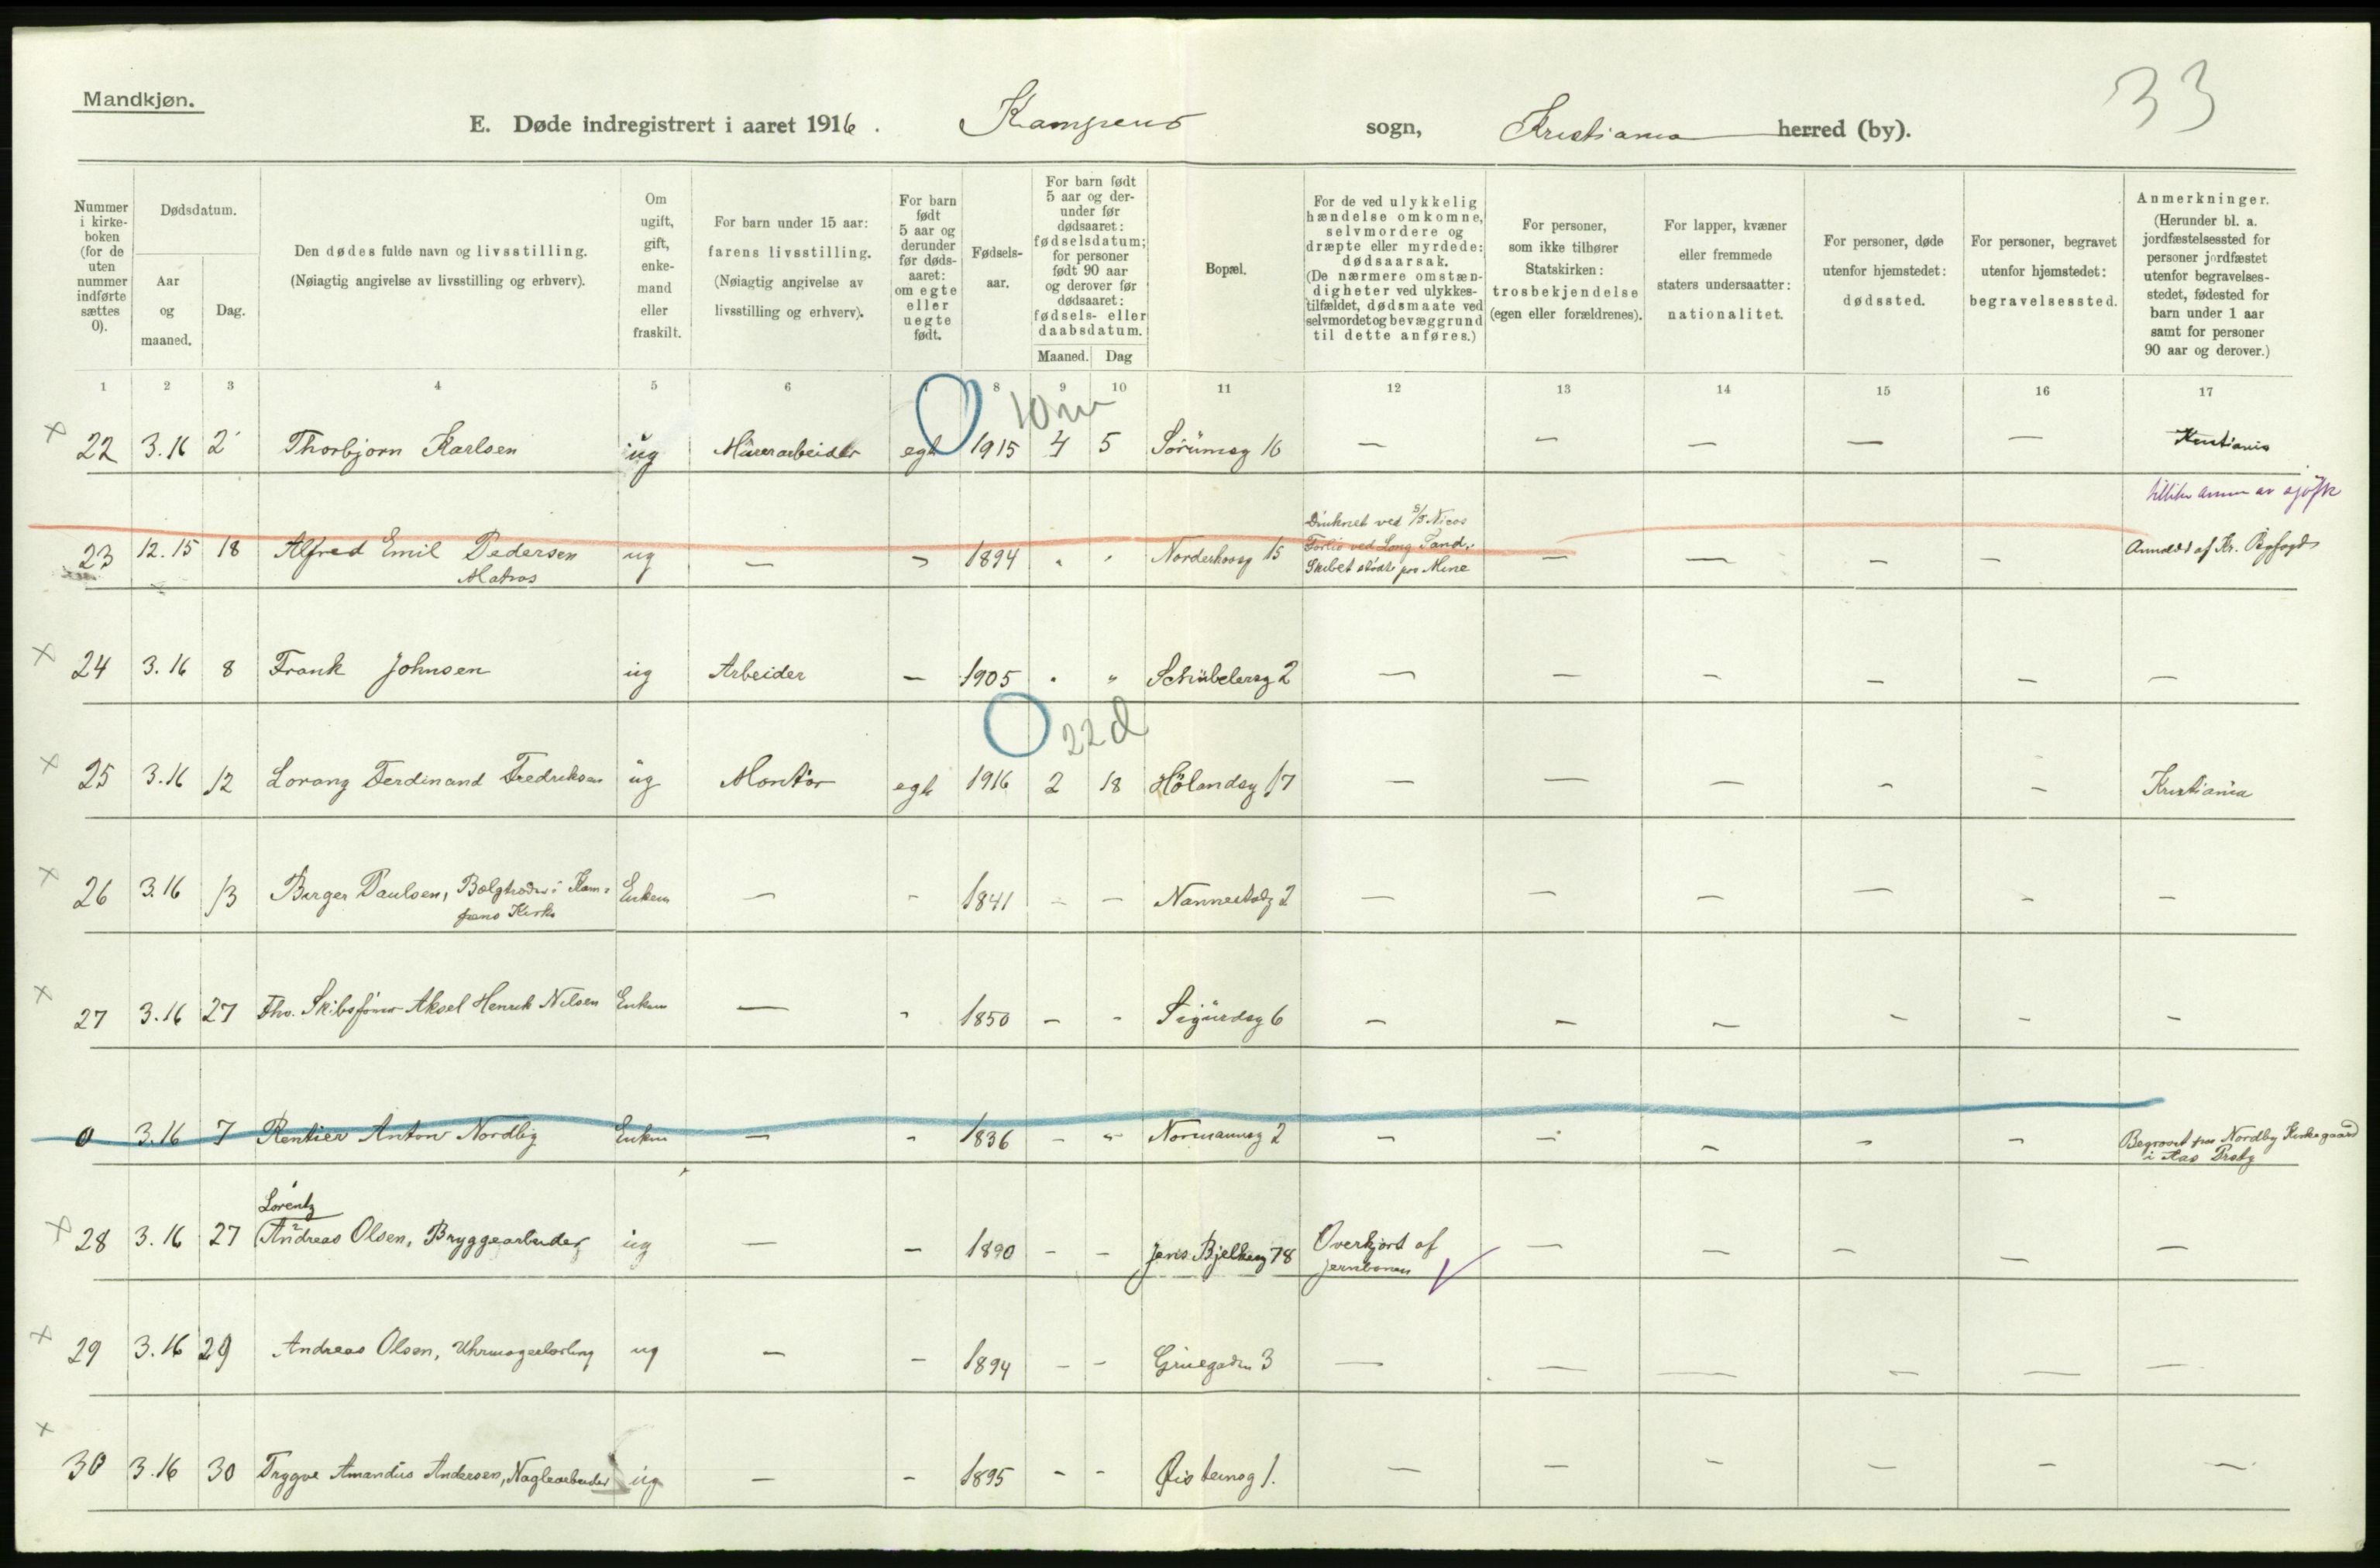 Mandkjøn.
33
E. Døde indregistrert i aaret 1916. Kampens sogn, Kristiania herred (by).
Nummer i kirkeboken (for de uten nummer indførte sættes 0).
Dødsdatum.
Aar og maaned.
Dag.
Den dødes fulde navn og livsstilling.
(Nøiagtig angivelse av livsstilling og erhverv).
Om ugift, gift, enkemand eller fraskilt.
For barn under 15 aar: farens livsstilling.
(Nøiagtig angivelse av livsstilling og erhverv).
For barn født 5 aar og derunder før dødsaaret: om egte eller uegte født.
Fødselsaar.
For barn født 5 aar og derunder før dødsaaret: fødselsdatum; for personer født 90 aar og derover før dødsaaret: fødsels- eller daabsdatum.
Maaned. Dag
Bopæl.
For de ved ulykkelig hændelse omkomne, selvmordere og dræpte eller myrdede: dødsaarsak.
(De nærmere omstændigheter ved ulykkestilfældet, dødsmaate ved selvmordet og bevæggrund til dette anføres.)
For personer, som ikke tilhører Statskirken: trosbekjendelse (egen eller forældrenes).
For lapper, kvæner eller fremmede staters undersaatter: nationalitet.
For personer, døde utenfor hjemstedet: dødssted.
For personer, begravet utenfor hjemstedet: begravelsessted.
Anmerkninger.
(Herunder bl. a. jordfæstelsessted for personer jordfæstet utenfor begravelsesstedet, fødested for barn under 1 aar samt for personer 90 aar og derover.)
1 2 3 4 5 6 7 8 9 10 11 12 13 14 15 16 17
10 m
× 22 3.16 2 Thorbjørn Karlsen ug Murerarbeider egte 1915 4 5 Sörumsg 16 — — — — — Kristiania
23 12.15 18 Alfred Emil Pedersen ug — - 1894 " " Norderhovsg 15 — — — — Anmeldt af Kr. Byfogd
Matros
Druknet ved S/S Nicos
Forlis ved Long Sand.
Skibet stødte paa Mine
× 24 3.16 8 Frank Johnsen ug Arbeider — 1905 " " Schübelersg 2 — — — — — —
22 d
× 25 3.16 12 Lorang Ferdinand Fredriksen ug Montör egte 1916 2 18 Hölandsg 17 — — — — — Kristiania
× 26 3.16 13 Berger Paulsen, Bælgtræder i Kam-
pens Kirke Enkem — - 1841 - - Nannestadg 2 — — — — — —
× 27 3.16 27 Fhv. Skibsfører Aksel Henrik Nilsen Enkem — - 1850 - - Sigurdsg 6 — — — — — —
0 3.16 7 Rentier Anton Nordby Enkem — - 1836 - - Normannsg 2 — — — — — Begravet paa Nordby Kirkegaard
i Aas Prstg
Lorentz
× 28 3.16 27 Andreas Olsen, Bryggearbeider ug — — 1890 - - Jens Bjelkesg 78 Overkjørt af — — — — —
jernbanen
× 29 3.16 29 Andreas Olsen, Uhrmagerlærling ug — - 1894 - - Gruegaden 3 — — — — — —
× 30 3.16 30 Trygve Amandus Andersen, Naglearbeider ug — - 1895 - - Øisteinsg 1. — — — — — —